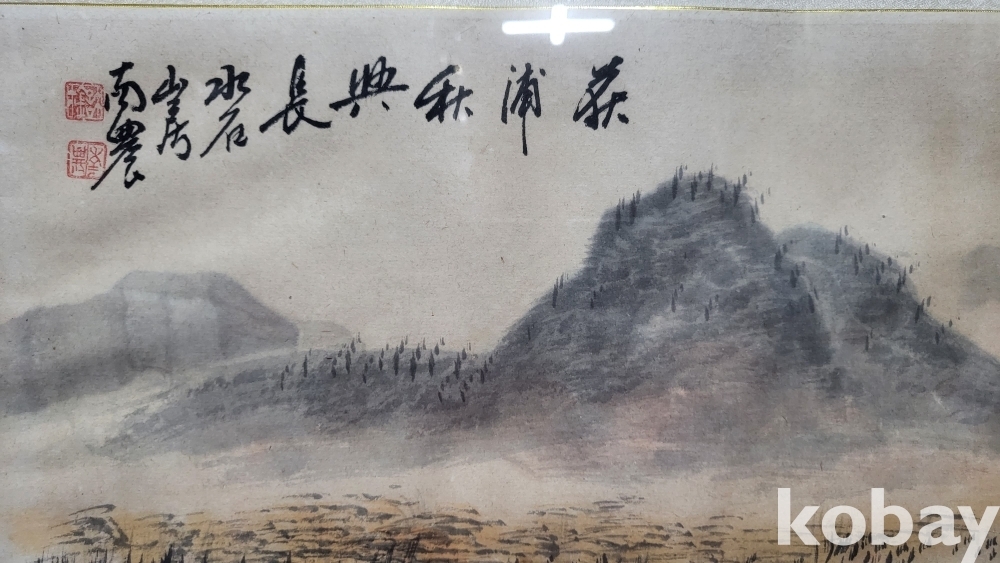 荻浦秋興長
水石
山房
南農
kobay